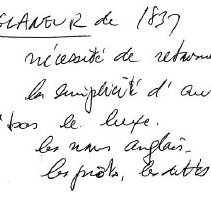 GLANEUR de 1837
nécessité de retourn
la simplicité d'au
bas le luxe.
les noms anglais.
les prots, les lettes